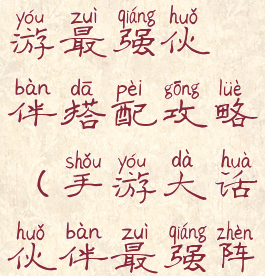 yóu zuì qiáng huǒ
游最强伙
bàn dā pèi gōng lüè
伴搭配攻略
shǒu yóu dà huà
（手游大话
huǒ bàn zuì qiáng zhèn
伙伴最强阵